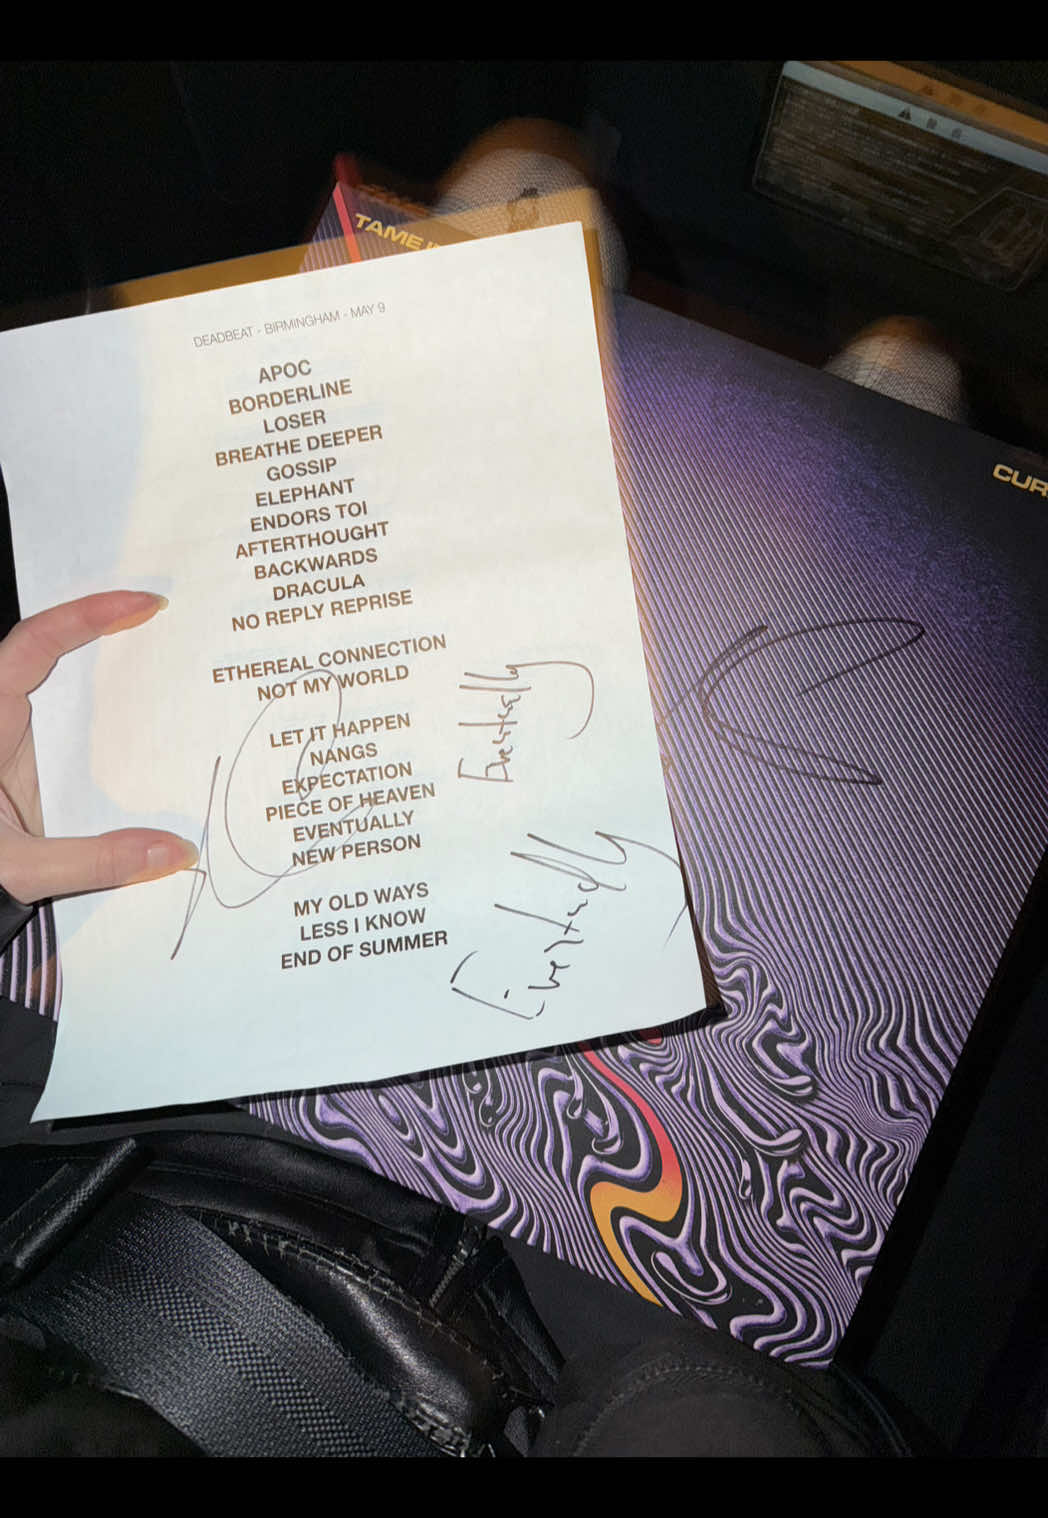 TAME I
DEADBEAT - BIRMINGHAM - MAY 9
APOC
BORDERLINE
LOSER
BREATHE DEEPER
GOSSIP
ELEPHANT
ENDORS TOI
AFTERTHOUGHT
BACKWARDS
DRACULA
NO REPLY REPRISE
ETHEREAL CONNECTION
NOT MY WORLD
LET IT HAPPEN
NANGS
EXPECTATION
PIECE OF HEAVEN
EVENTUALLY
NEW PERSON
MY OLD WAYS
LESS I KNOW
END OF SUMMER
Eventually
Eventually
CUR